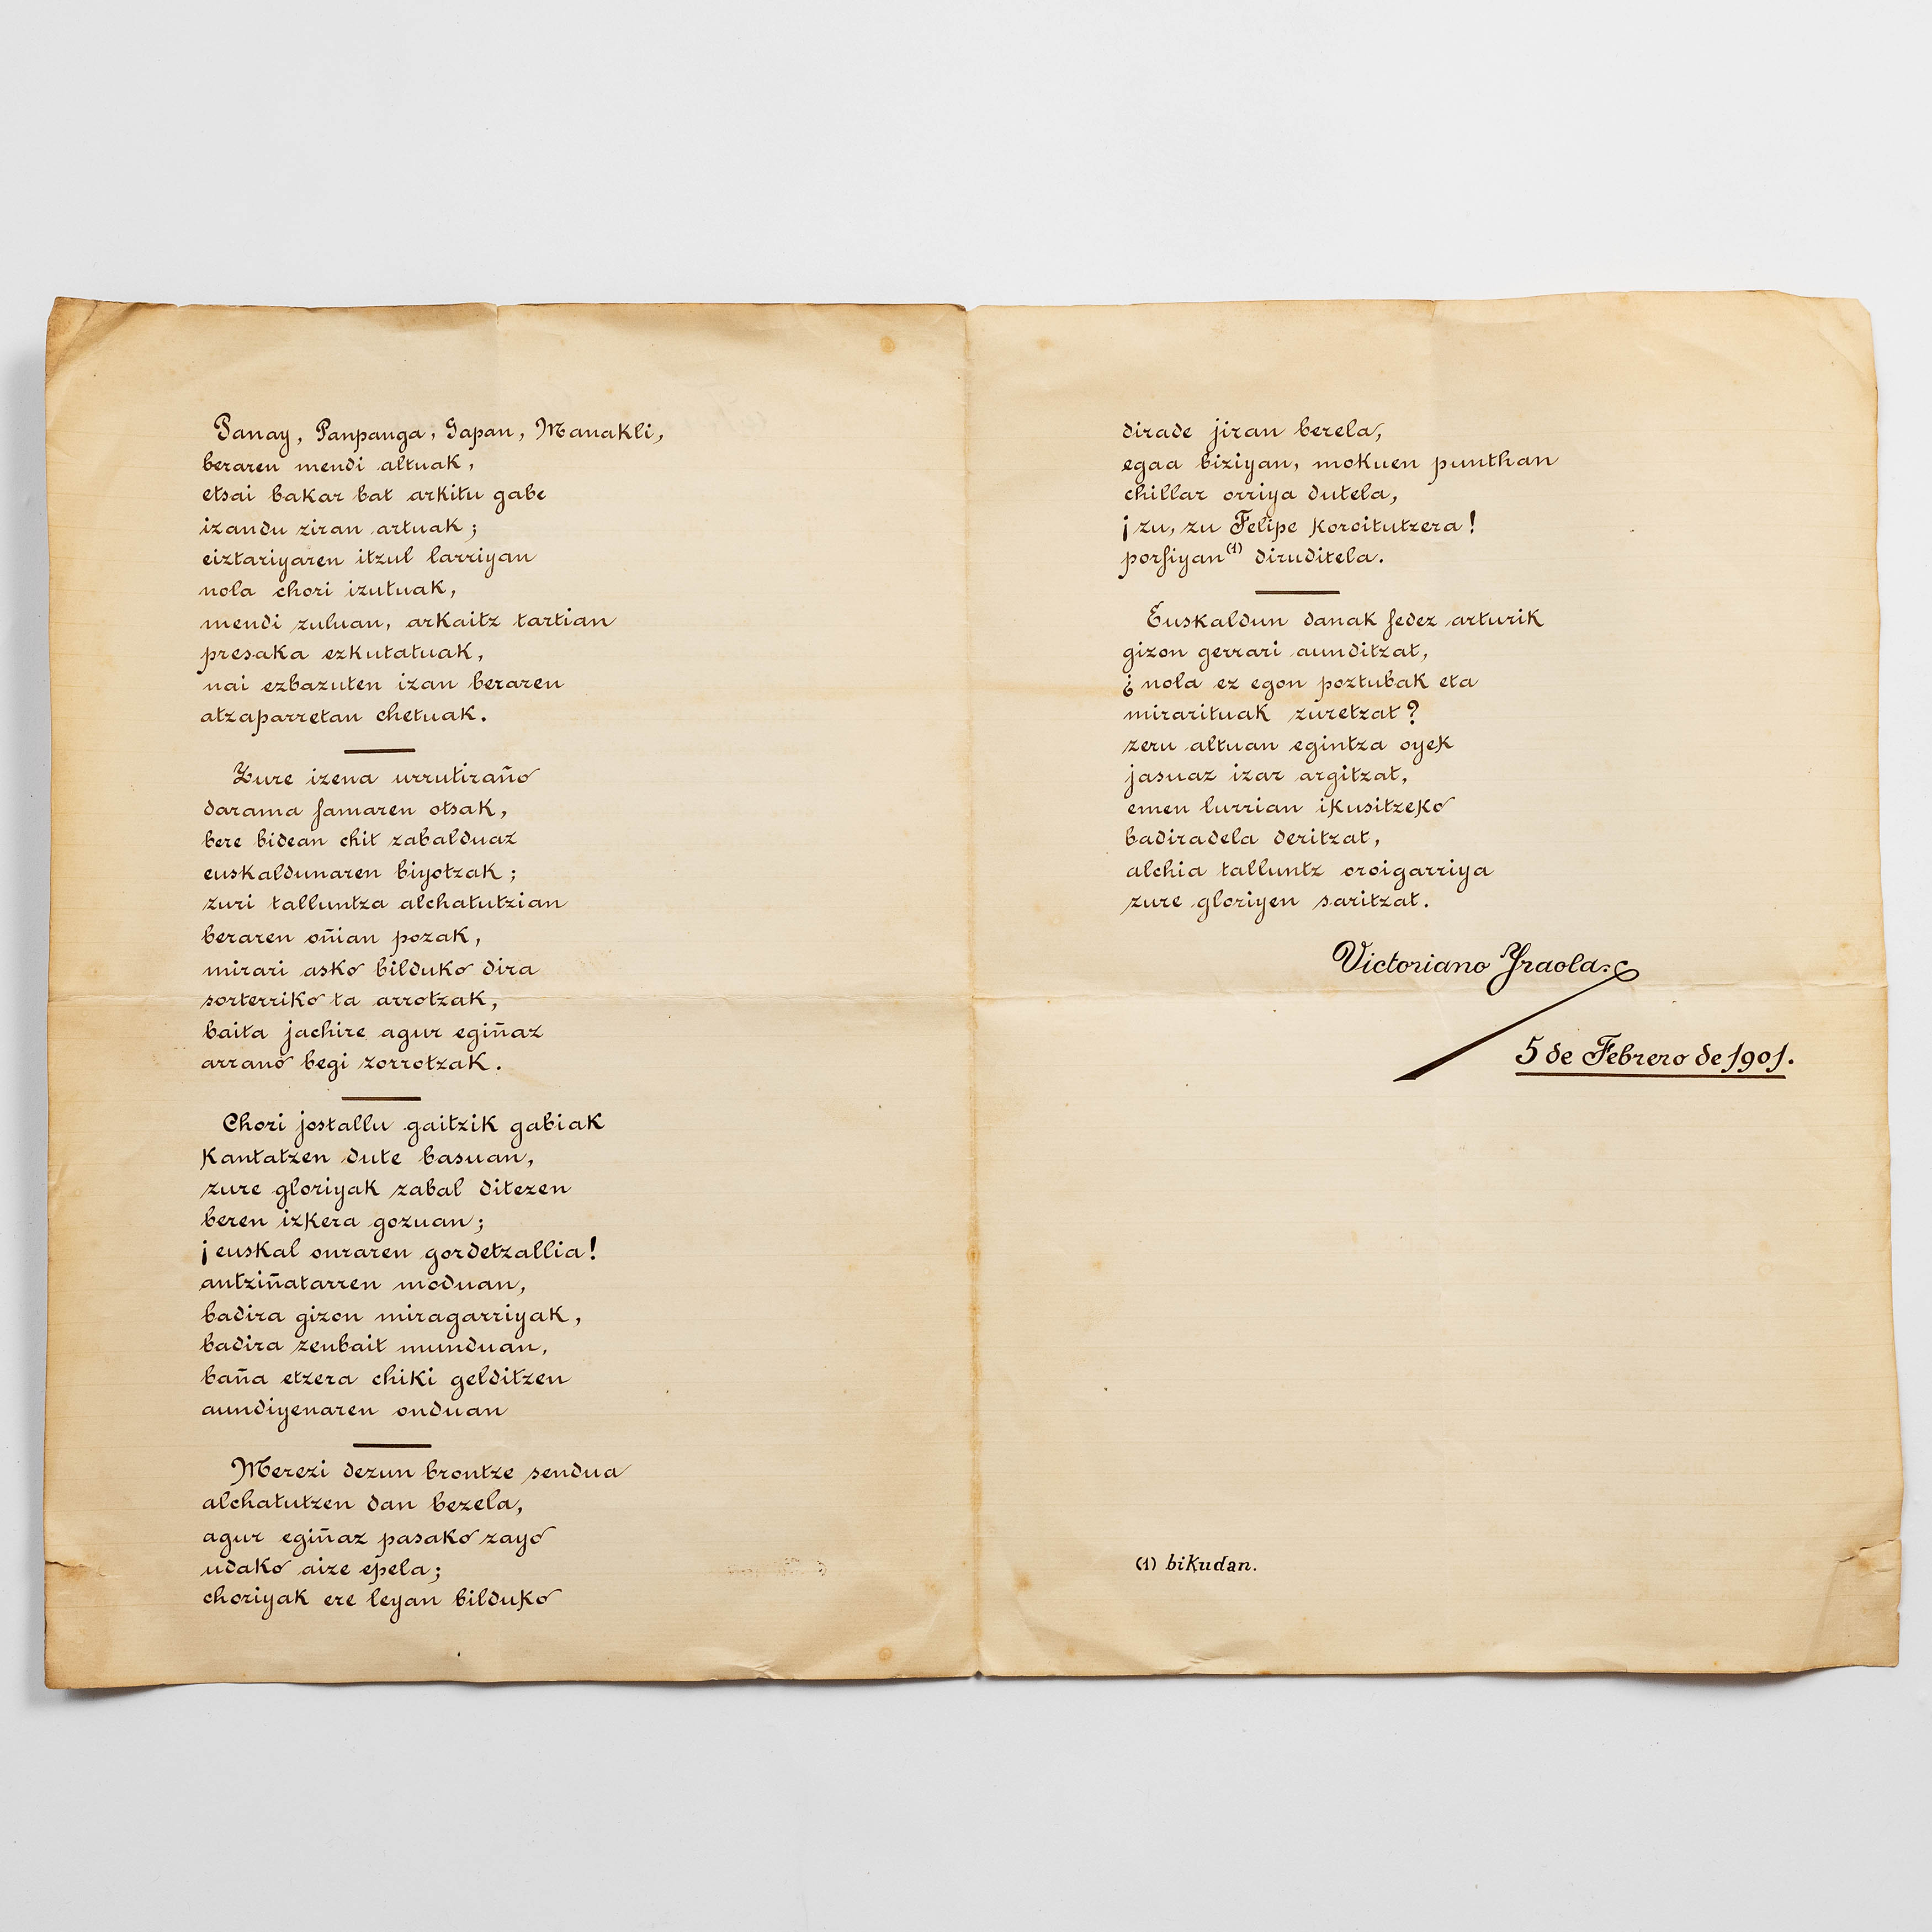 Panay, Panpanga, Gapan, Manakli,
beraren mendi altuak,
etsai bakar bat arkitu gabe
izandu ziran artuak;
eiztariyaren itzul larriyan
nola chori izutuak,
mendi zuluan, arkaitz tartian
presaka ezkutatuak,
nai ezbazuten izan beraren
atzaparretan chetuak.
Zure izena urrutiraño
darama famaren otsak,
bere bidean chit zabalduaz
euskaldunaren biyotzak;
zuri talluntza alchatutzian
beraren oñian pozak,
mirari asko bilduko dira
sorterriko ta arrotzak,
baita jachire agur egiñaz
arrano begi zorrotzak.
Chori jostallu gaitzik gabiak
kantatzen dute basuan,
zure gloriyak zabal ditezen
beren izkera gozuan;
¡euskal onraren gordetzallia!
antziñatarren moduan,
badira gizon miragarriyak,
badira zenbait munduan,
baña etzera chiki gelditzen
aundiyenaren onduan
Merezi dezun brontze sendua
alchatutzen dan bezela,
agur egiñaz pasako zayo
udako aize epela;
choriyak ere leyan bilduko
dirade jiran berela,
egaa biziyan, mokuen punthan
chillar orriya dutela,
¡zu, zu Felipe koroitutzera!
porfiyan(1) diruditela.
Euskaldun danak fedez arturik
gizon gerrari aunditzat,
¿nola ez egon poztubak eta
mirarituak zuretzat?
zeru altuan egintza oyek
jasuaz izar argitzat,
emen lurrian ikusitzeko
badiradela deritzat,
alchia talluntz oroigarriya
zure gloriyen saritzat.
Victoriano Yraola.
5 de Febrero de 1901.
(1) bikudan.